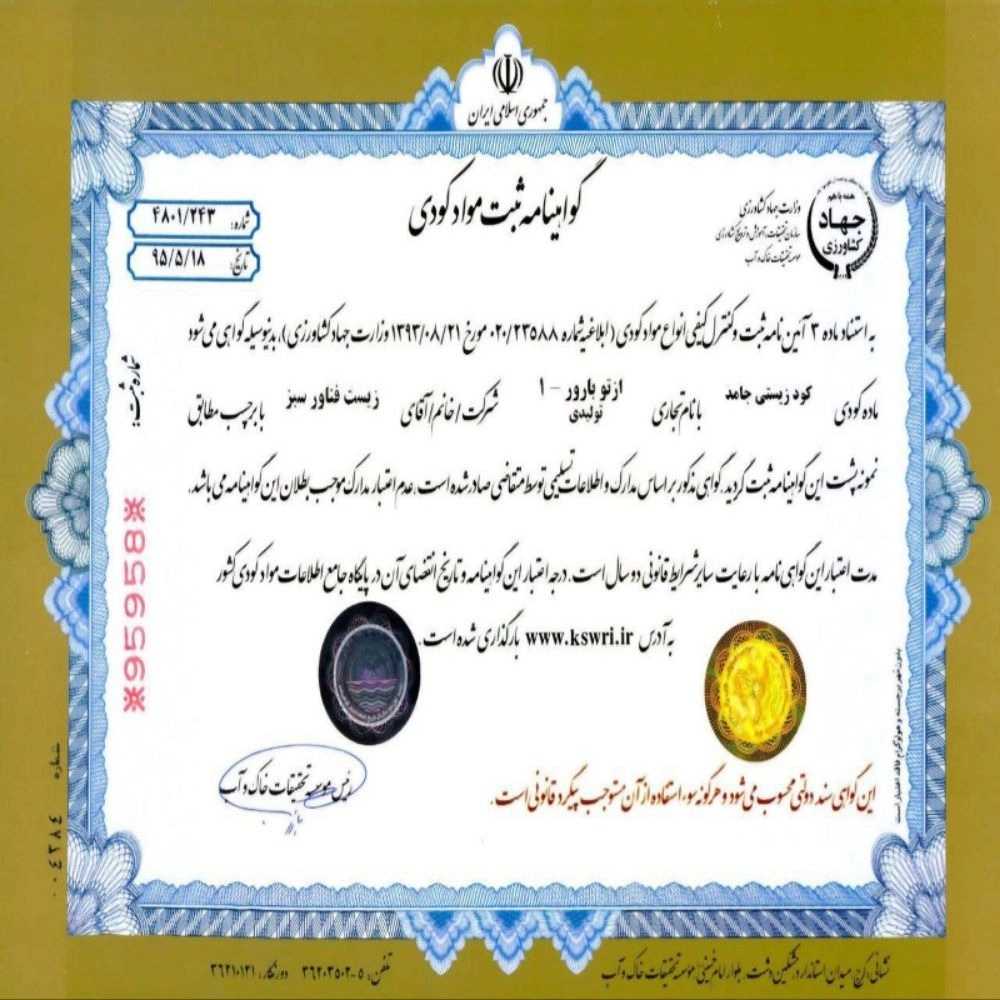 جمهوری اسلامی ایران
گواهینامه ثبت مواد کودی
همه با هم
جهاد
کشاورزی
وزارت جهاد کشاورزی
سازمان تحقیقات، آموزش و ترویج کشاورزی
موسسه تحقیقات خاک و آب
شماره: ۴۸۰۱/۲۴۳
تاریخ: ۹۵/۵/۱۸
به استناد ماده ۳ آئین نامه ثبت و کنترل کیفی انواع مواد کودی (ابلاغیه شماره ۰۲۰/۲۳۵۸۸ مورخ ۱۳۹۳/۰۸/۲۱ وزارت جهاد کشاورزی)، بدینوسیله گواهی می شود
ماده کودی کود زیستی جامد با نام تجاری ازتو بارور - ۱ تولیدی شرکت / خانم / آقای زیست فناور سبز با برچسب مطابق
نمونه پشت این گواهینامه ثبت گردید. گواهی مذکور بر اساس مدارک و اطلاعات تسلیمی توسط متقاضی صادر شده است. عدم اعتبار مدارک موجب بطلان این گواهینامه می باشد.
مدت اعتبار این گواهی نامه با رعایت سایر شرایط قانونی دو سال است. درجه اعتبار این گواهینامه و تاریخ انقضای آن در پایگاه جامع اطلاعات مواد کودی کشور
به آدرس www.kswri.ir بارگذاری شده است.
شماره ثبت:
※95958※
بدون مهر برجسته و هولوگرام فاقد اعتبار است
این گواهی سند دولتی محسوب می شود و هرگونه سوء استفاده از آن مستوجب پیگرد قانونی است.
رئیس موسسه تحقیقات خاک و آب
شماره ۰۰۴۳۸۴
نشانی: کرج، میدان استاندارد، مشکین دشت، بلوار امام خمینی، موسسه تحقیقات خاک و آب
تلفن: ۵-۳۶۲۰۳۵۰۲ دورنگار: ۳۶۲۱۰۱۲۱